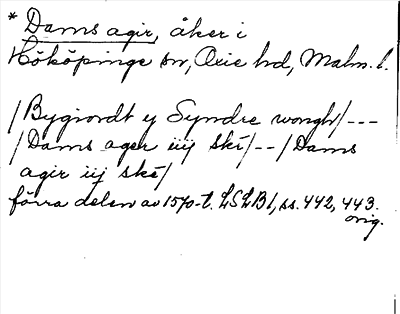 * Dams agir, åker i
Hököpinge sn, Oxie hd, Malm. l.
/Bygiordt y Syndre wongh/---
/Dams ager iiij ske/--/Dams
agir iij ske/
förra delen av 1570-t. LSLB1, ss. 442, 443.
orig.